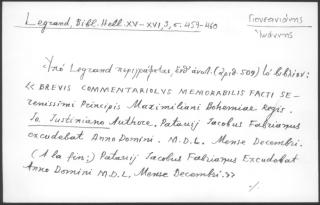 Legrand, Bibl. Hell. XV-XVI, 3, σ. 459-460
Γιουστινιάνης
Ἰωάννης
Ὑπό Legrand περιγράφεται, ἐνθ' ἀνωτ. (ἀριθ. 509) τό βιβλίον:
« BREVIS COMMENTARIOLUS MEMORABILIS FACTI SE-
renissimi Principis Maximiliani Bohemiae Regis.
Jo Justiniano Authore, Patavij Jacobus Fabrianus
excudebat Anno Domini. M.D.L. Mense Decembri.
(A la fin:) Patavij Jacobus Fabrianus Excudebat
Anno Domini M.D.L, Mense Decembri.»
·/.